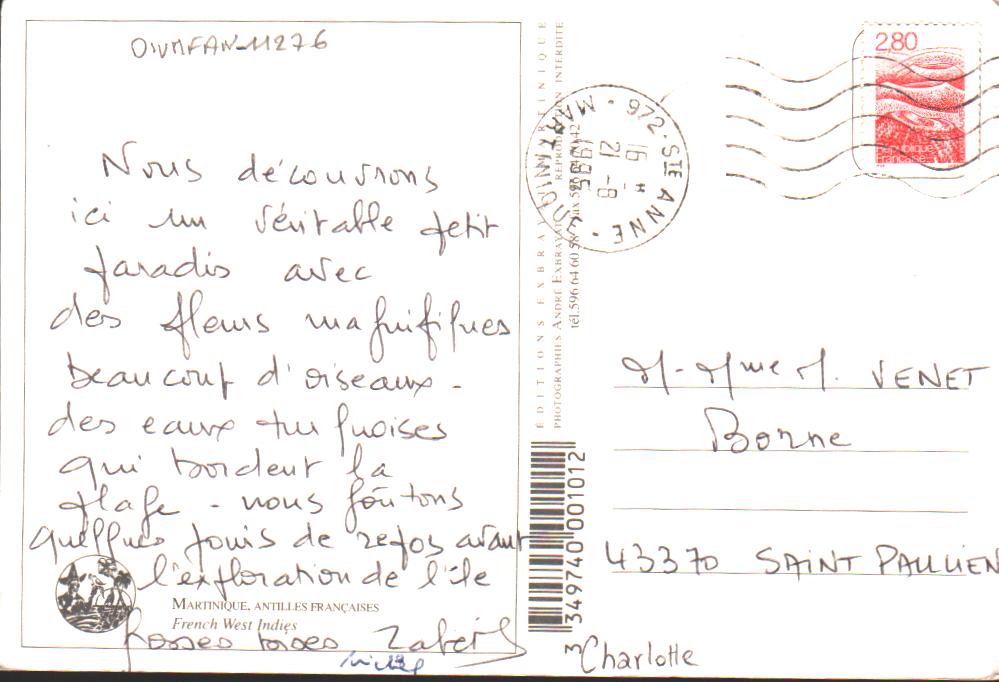 OIVMFAN-11276
Nous découvrons
ici un véritable petit
paradis avec
des fleurs magnifiques
beaucoup d'oiseaux -
des eaux turquoises
qui bordent la
plage - nous goûtons
quelques jours de repos avant
l'exploration de l'île
MARTINIQUE, ANTILLES FRANÇAISES
French West Indies
Grosses bises
ÉDITIONS EXBRAYAT MARTINIQUE
PHOTOGRAPHIES ANDRÉ EXBRAYAT REPRODUCTION INTERDITE
tél.596 64 60 58
3 497400 001012
972 · STE ANNE · MARTINIQUE
16 H
21 -8
1995
2,80
République
Française
M. Mme M. VENET
Borne
43370 SAINT PAULIEN
Charlotte